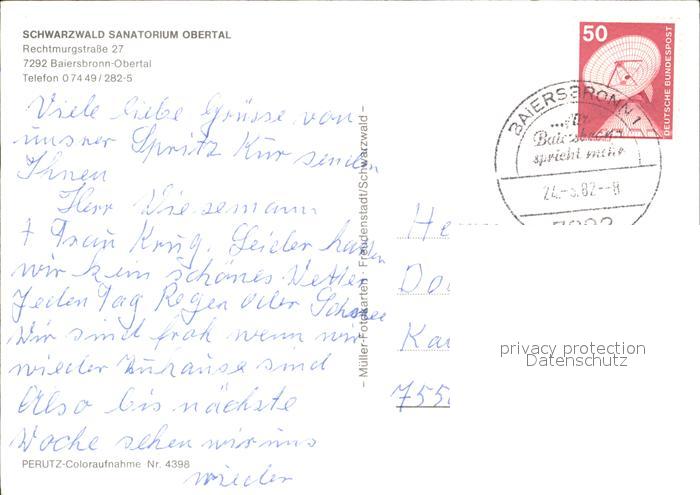 SCHWARZWALD SANATORIUM OBERTAL
Rechtmurgstraße 27
7292 Baiersbronn-Obertal
Telefon 0 74 49 / 282-5
Viele liebe Grüsse von
unsrer Spritz Kur senden
Ihnen
Herr Wiesemann
+ Frau Krug. Leider haben
wir kein schönes Wetter
Jeden Tag Regen oder Schnee
Wir sind froh wenn wir
wieder Zuhause sind
Also bis nächste
Woche sehen wir uns
wieder
PERUTZ-Coloraufnahme Nr. 4398
– Müller-Fotokarten – Freudenstadt/Schwarzwald –
50
DEUTSCHE BUNDESPOST
BAIERSBRONN 1
Baiersbronn
spricht mehr
82--8
7292
He
Do
Ka
755
privacy protection
Datenschutz